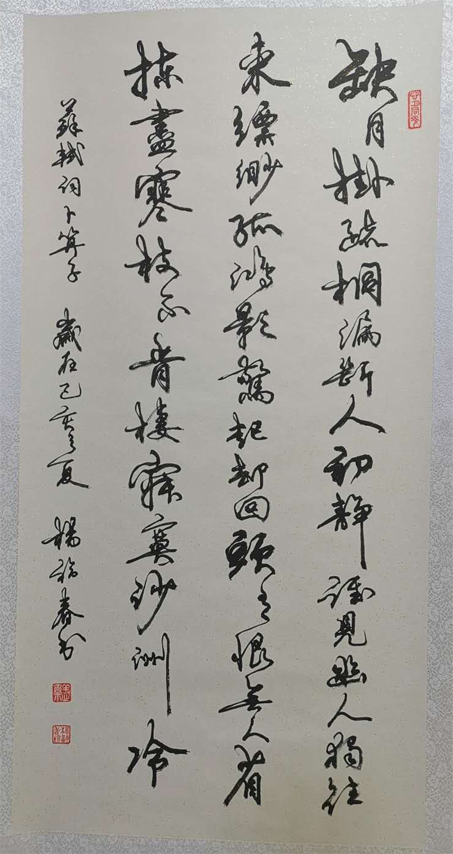 缺月掛疏桐漏斷人初靜誰見幽人獨往
來縹緲孤鴻影驚起卻回頭有恨無人省
揀盡寒枝不肯棲寂寞沙洲冷
蘇軾詞卜算子 歲在己亥之夏 楊
春书